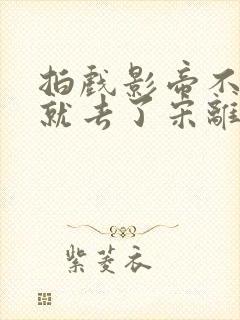 拍戏影帝不
就去了宋離
紫菱衣